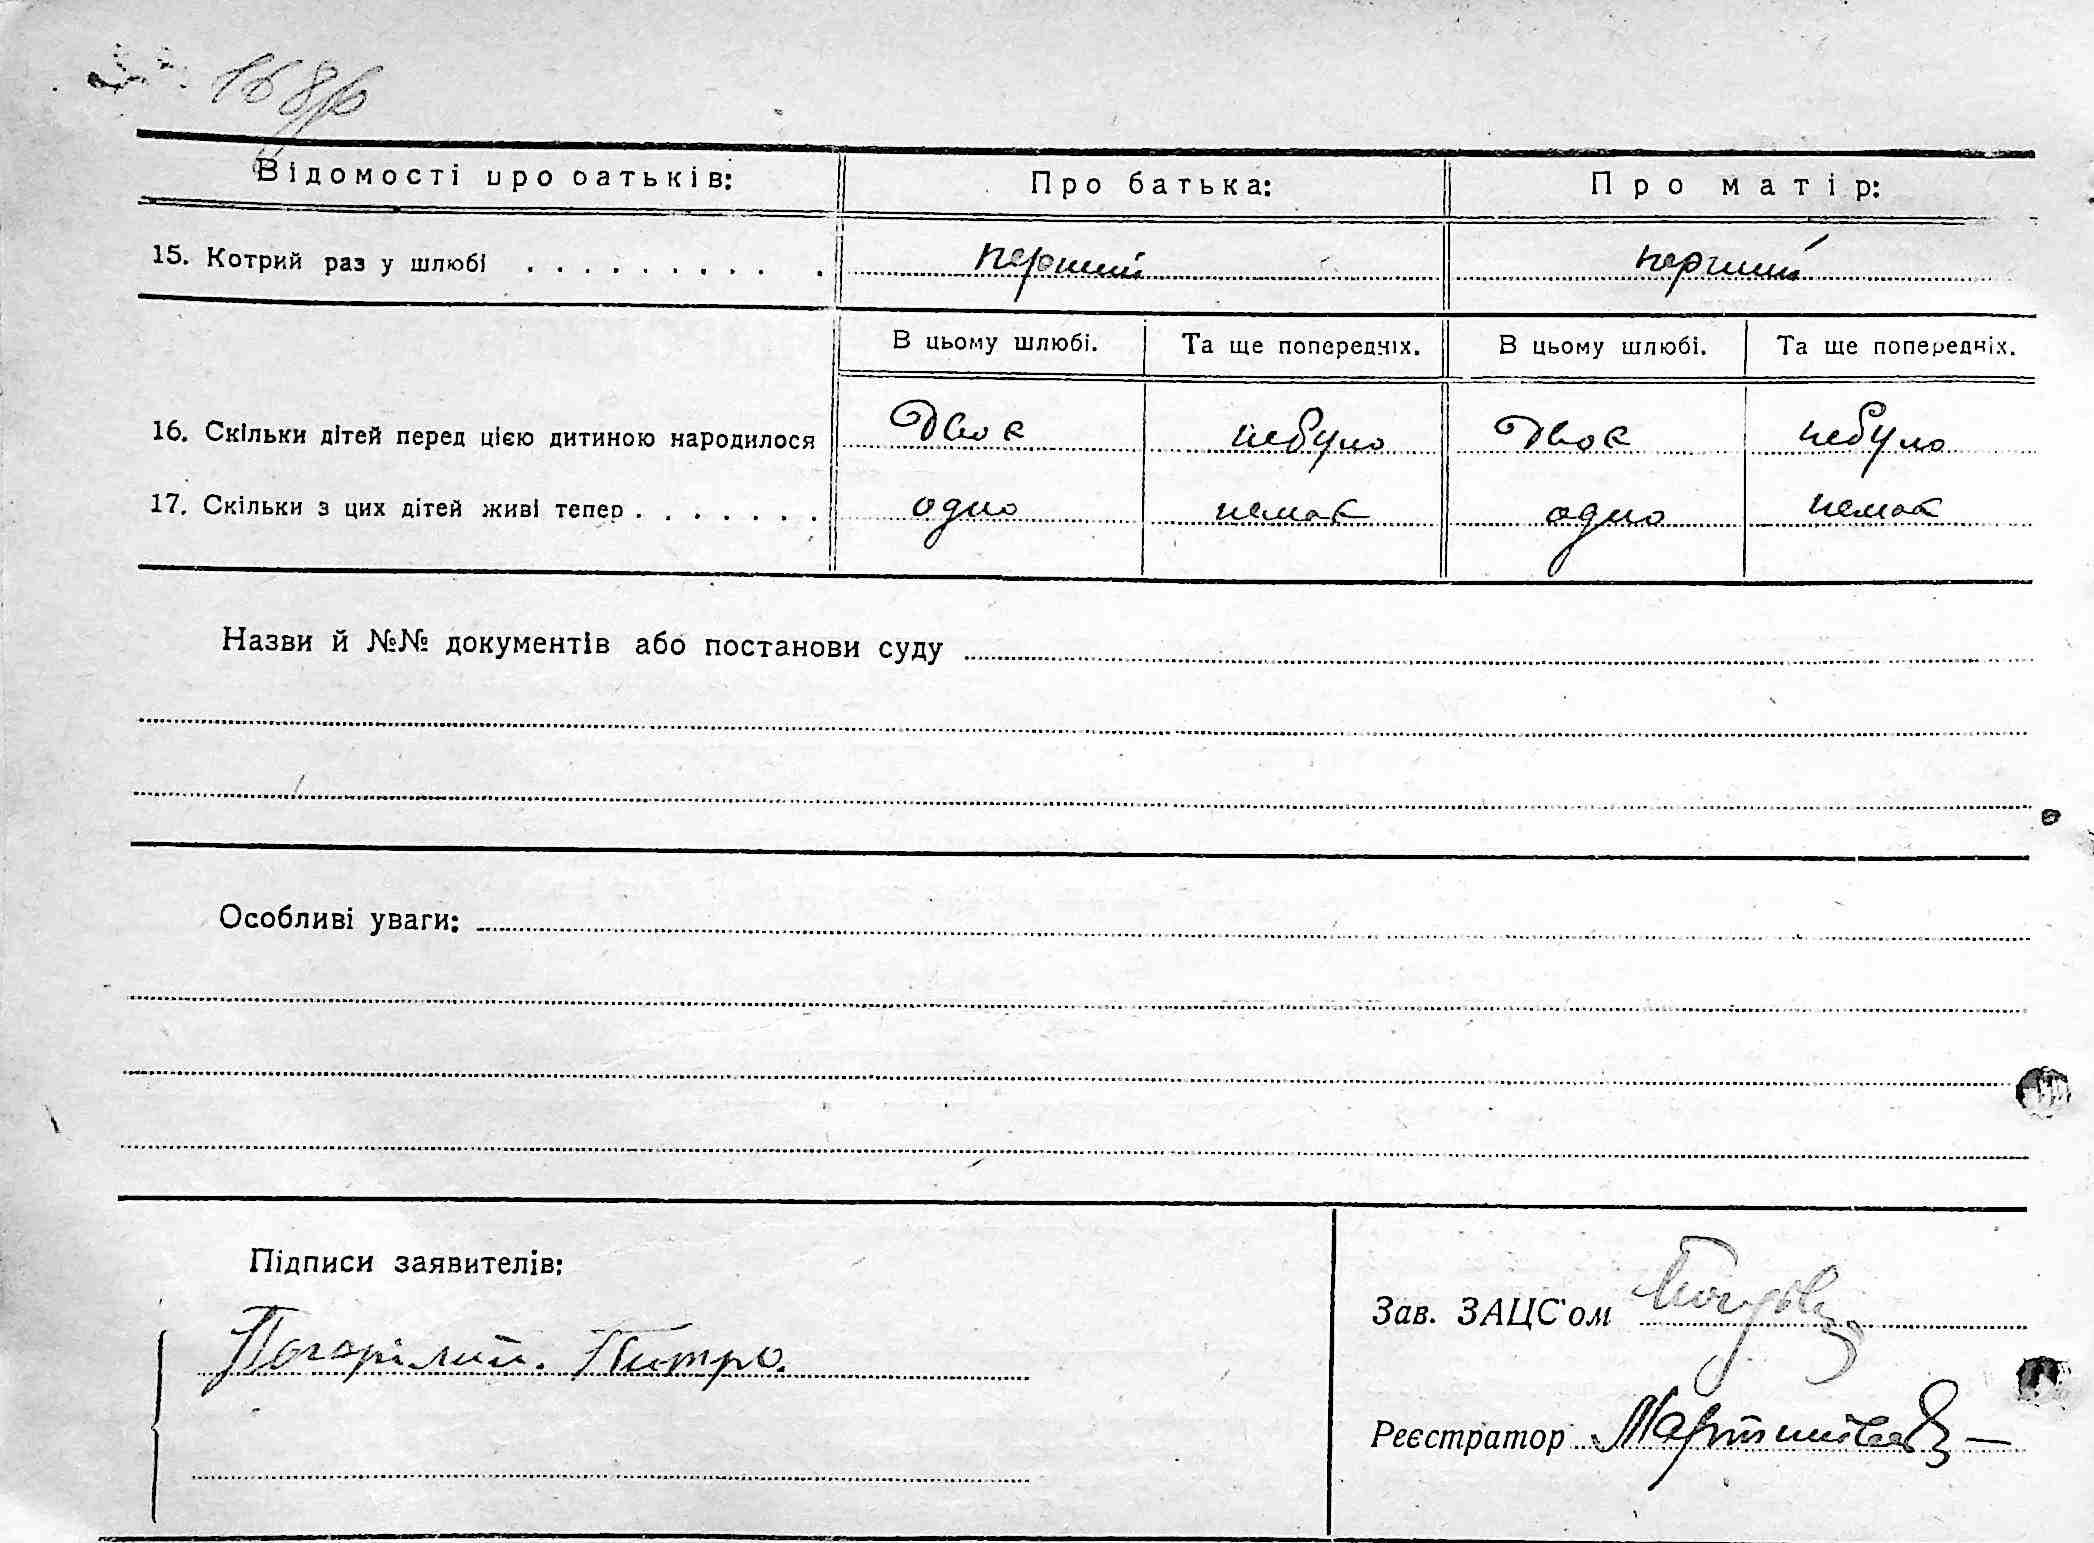 Відомості про батьків: Про батька: Про матір:
15. Котрий раз у шлюбі . . . . . . . . . . перший перший
В цьому шлюбі. Та ще попередніх. В цьому шлюбі. Та ще попередніх.
16. Скільки дітей перед цією дитиною народилося двоє небуло двоє небуло
17. Скільки з цих дітей живі тепер . . . . . . . одно немає одно немає
Назви й №№ документів або постанови суду
Особливі уваги:
Підписи заявителів:
Зав. ЗАЦС'ом
Погорілий. Питро.
Реєстратор